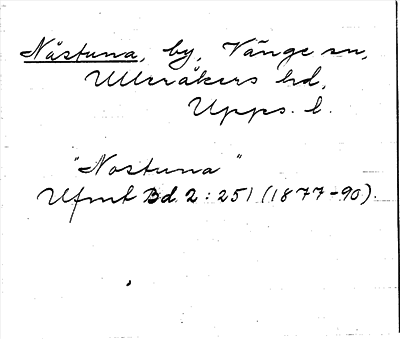 Nåstuna, by, Vänge sn,
Ulleråkers hd,
Upps. l.
"Nostuna"
Ufmt Bd. 2:251 (1877-90).